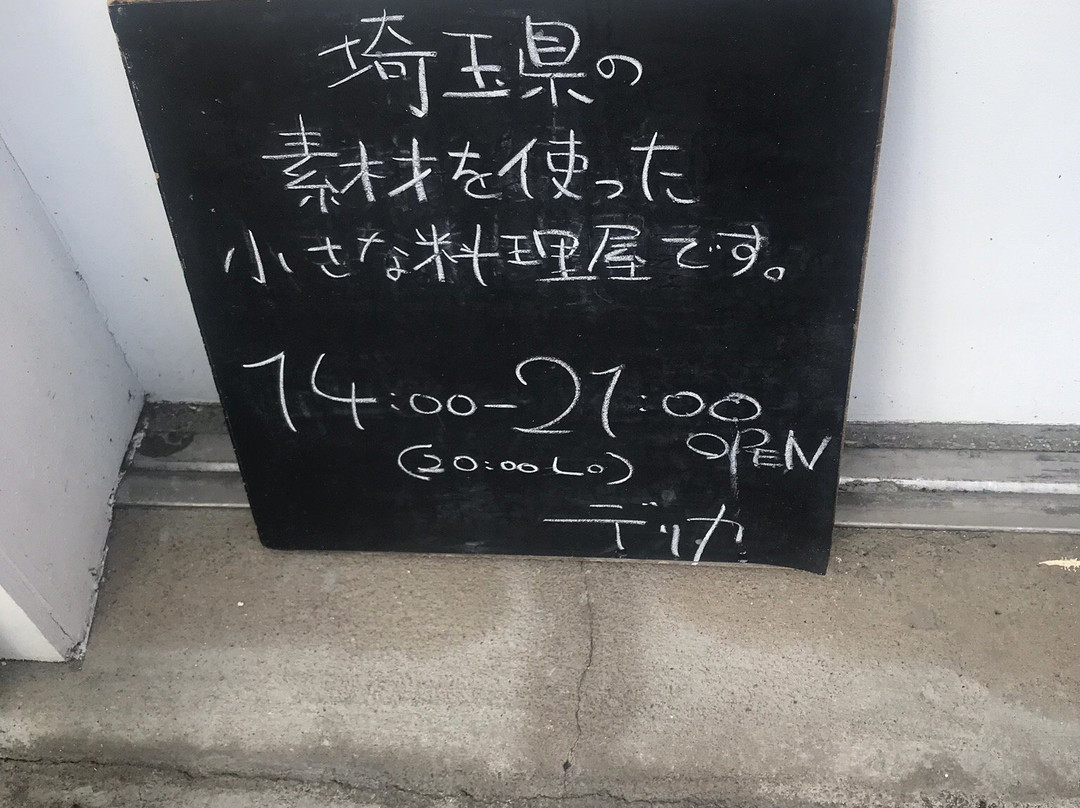 埼玉県の
素材を使った
小さな料理屋です。
14:00-21:00
OPEN
(20:00 Lo)
デリカ